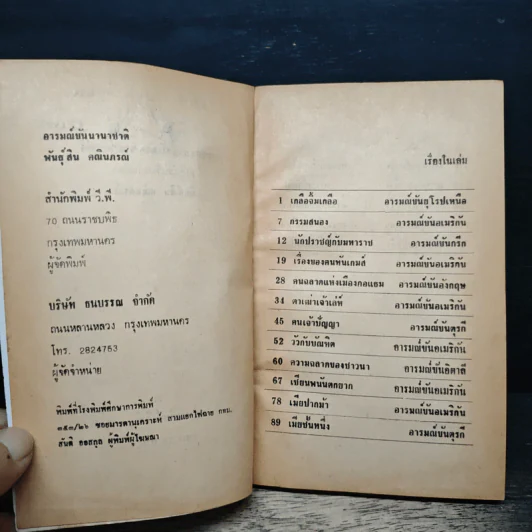 อารมณ์ขันนานาชาติ
พันธุ์สิน คณินภรณ์
สำนักพิมพ์ วี.พี.
70 ถนนราชบพิธ
กรุงเทพมหานคร
ผู้จัดพิมพ์
บริษัท ธนบรรณ จำกัด
ถนนหลานหลวง กรุงเทพมหานคร
โทร. 2824753
ผู้จัดจำหน่าย
พิมพ์ที่โรงพิมพ์ศึกษาการพิมพ์
๓๕๓/๒๖ ซอยมารดานุเคราะห์ สามแยกไฟฉาย กทม.
สันติ ผู้พิมพ์ผู้โฆษณา
เรื่องในเล่ม
1 เกลือจิ้มเกลือ อารมณ์ขันยุโรปเหนือ
7 กรรมสนอง อารมณ์ขันอเมริกัน
12 นักปราชญ์กับมหาราช อารมณ์ขันกรีก
19 เรื่องของคนพันเกมส์ อารมณ์ขันอเมริกัน
28 คนฉลาดแห่งเมืองกอแธม อารมณ์ขันอังกฤษ
34 ตาเฒ่าเจ้าเล่ห์ อารมณ์ขันอเมริกัน
45 คนเจ้าปัญญา อารมณ์ขันตุรกี
52 วัวกับบัณฑิต อารมณ์ขันอเมริกัน
60 ความฉลาดของชาวนา อารมณ์ขันอิตาลี
67 เซียนพนันตกยาก อารมณ์ขันอเมริกัน
78 เมียปากม้า อารมณ์ขันอเมริกัน
89 เมียชั้นหนึ่ง อารมณ์ขันตุรกี